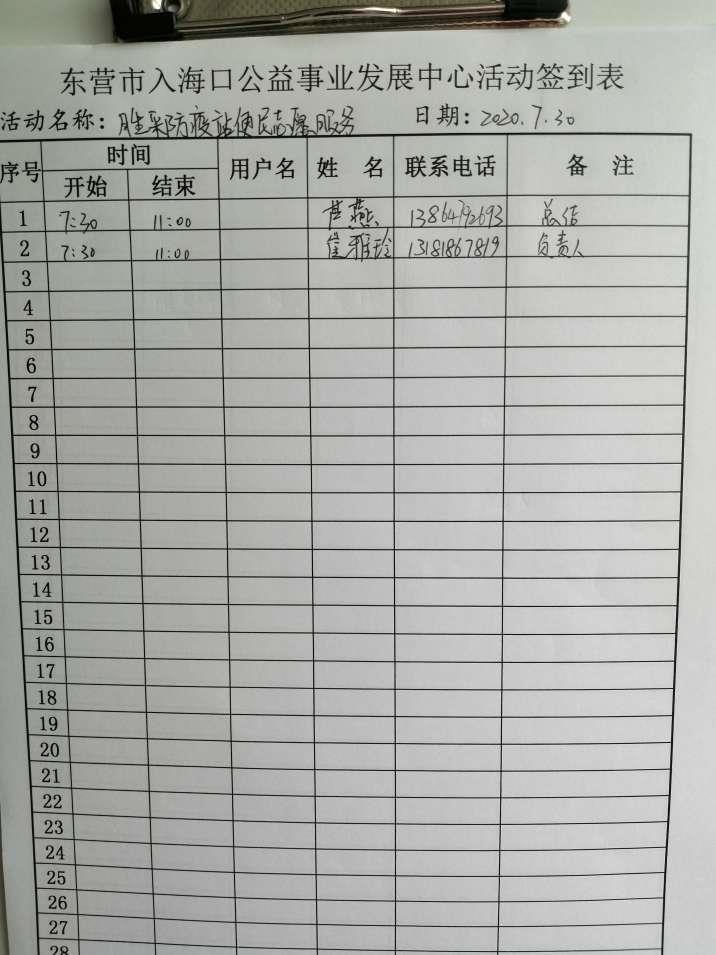 东营市入海口公益事业发展中心活动签到表
活动名称：胜采防疫站便民志愿服务 日期：2020.7.30
序号 时间 用户名 姓 名 联系电话 备 注
开始 结束
1 7:30 11:00 燕 13864792693 总结
2 7:30 11:00 崔雅玲 13181867819 负责人
3
4
5
6
7
8
9
10
11
12
13
14
15
16
17
18
19
20
21
22
23
24
25
26
27
28